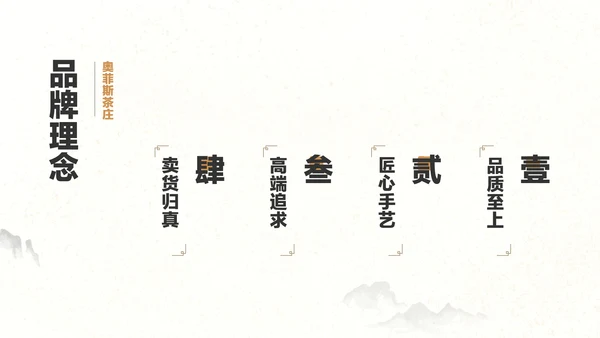 品牌理念
奥菲斯茶庄
壹
品质至上
贰
匠心手艺
叁
高端追求
肆
卖货归真